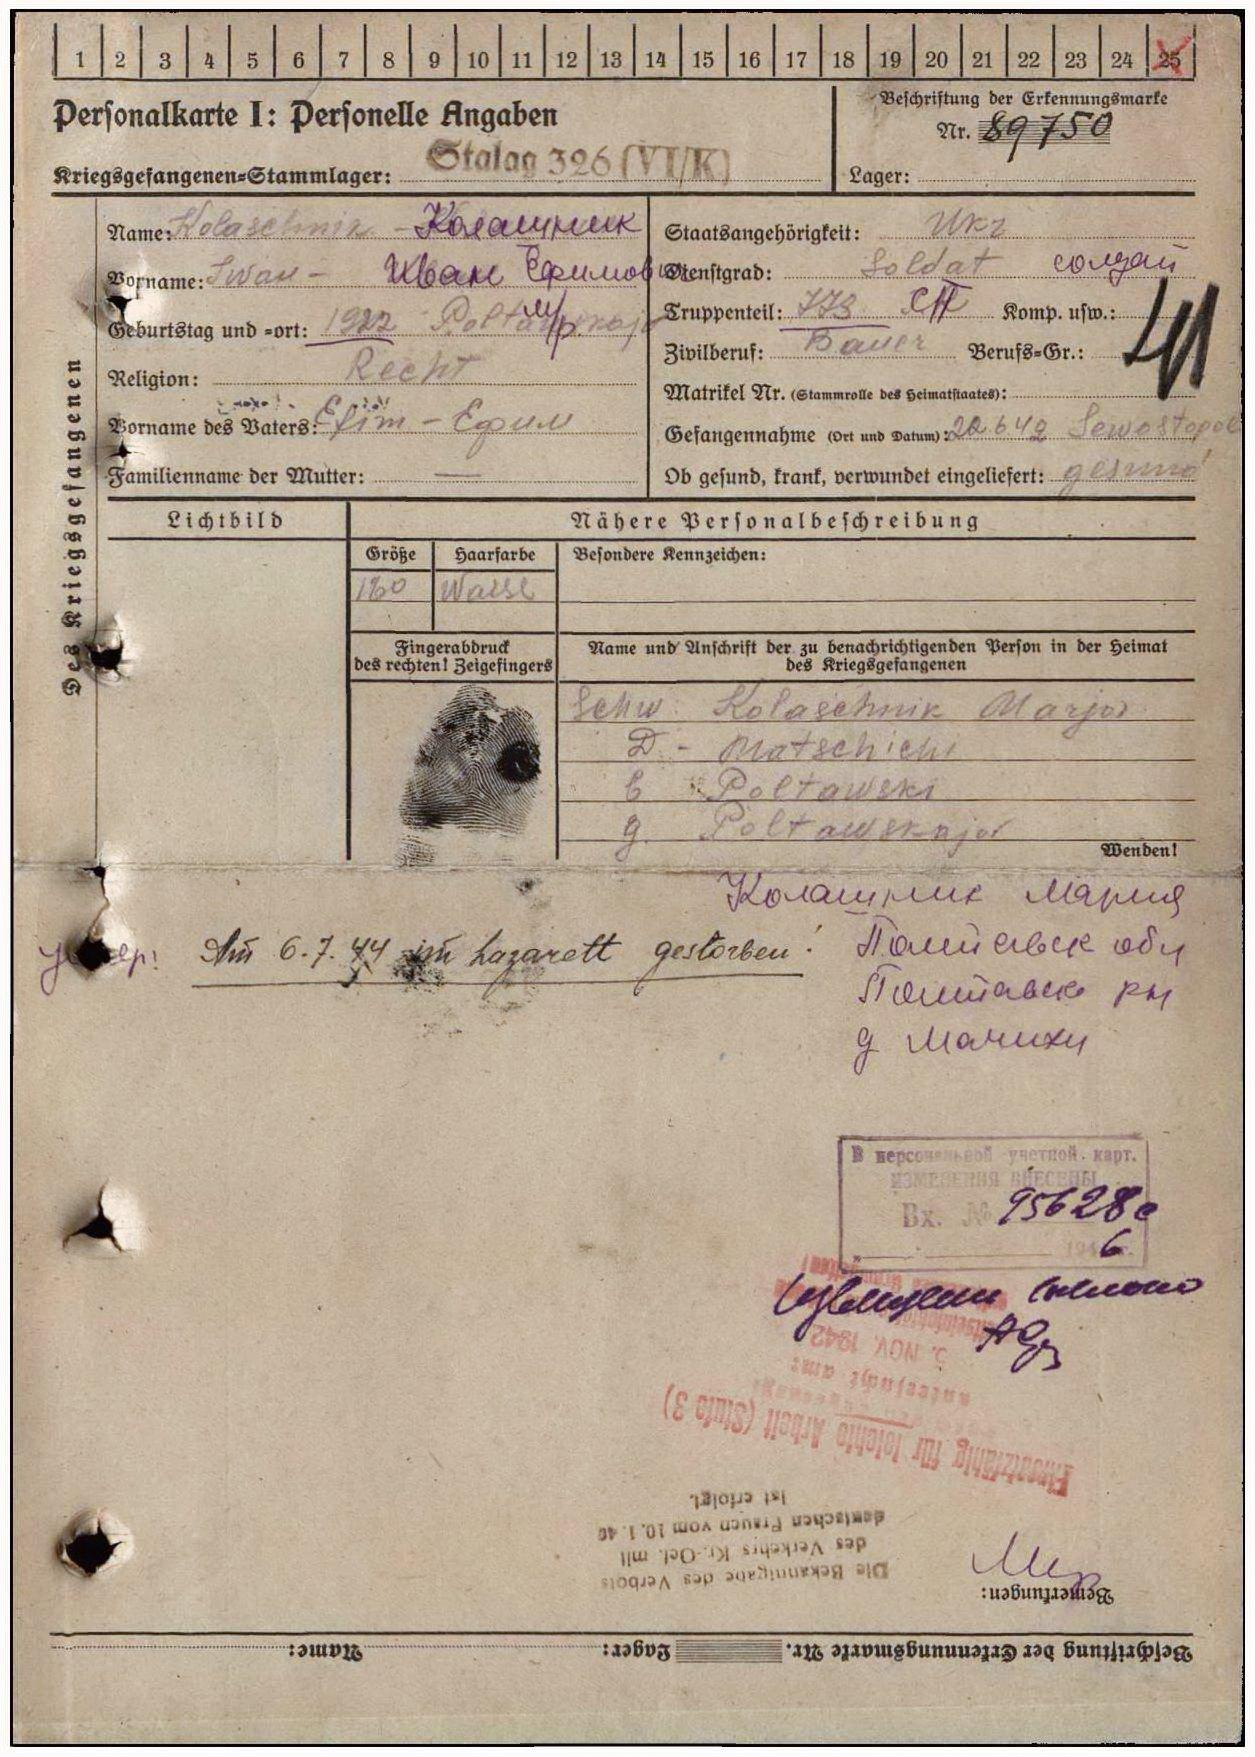 1 2 3 4 5 6 7 8 9 10 11 12 13 14 15 16 17 18 19 20 21 22 23 24 25
Personalkarte I: Personelle Angaben
Beschriftung der Erkennungsmarke
Nr. 89750
Kriegsgefangenen=Stammlager: Stalag 326 (VI/K)
Lager:
Des Kriegsgefangenen
Name: Kolaschnik - Колашник
Vorname: Iwan - Иван Ефимович
Geburtstag und =ort: 1922 Poltawskaja
Religion: Recht
Vorname des Vaters: Efim - Ефим
Familienname der Mutter: —
Staatsangehörigkeit: Ukr
Dienstgrad: Soldat солдат
Truppenteil: 773 СП Komp. usw.:
Zivilberuf: Bauer Berufs=Gr.:
Matrikel Nr. (Stammrolle des Heimatstaates):
Gefangennahme (Ort und Datum): 22 6 42 Sewostopol
Ob gesund, krank, verwundet eingeliefert: gesund
Lichtbild
Nähere Personalbeschreibung
Größe Haarfarbe Besondere Kennzeichen:
160
Fingerabdruck
des rechten! Zeigefingers
Name und Anschrift der zu benachrichtigenden Person in der Heimat
des Kriegsgefangenen
Schw. Kolaschnik Marja
D - Matschichi
Poltawski
g. Poltawskaja
Wenden!
Колашник Мария
умер! Am 6.7.44 im Lazarett gestorben!
Полтавск обл
Полтавск рн
д Мачихи
В персональной учетной карт.
ИЗМЕНЕНИЯ ВНЕСЕНЫ
Вх. № 95628с
194 6 г.
5. NOV. 1942
untersucht am:
Einsatzfähig für leichte Arbeit (Stufe 3)
Die Bekanntgabe des Verbots
des Verkehrs Kr.-Gef. mit
deutschen Frauen vom 10.1.40
ist erfolgt.
Bemerkungen:
Beschriftung der Erkennungsmarke Nr. Lager: Name: